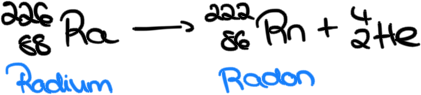 ²²⁶₈₈Ra ⟶ ²²²₈₆Rn + ⁴₂He
Radium Radon